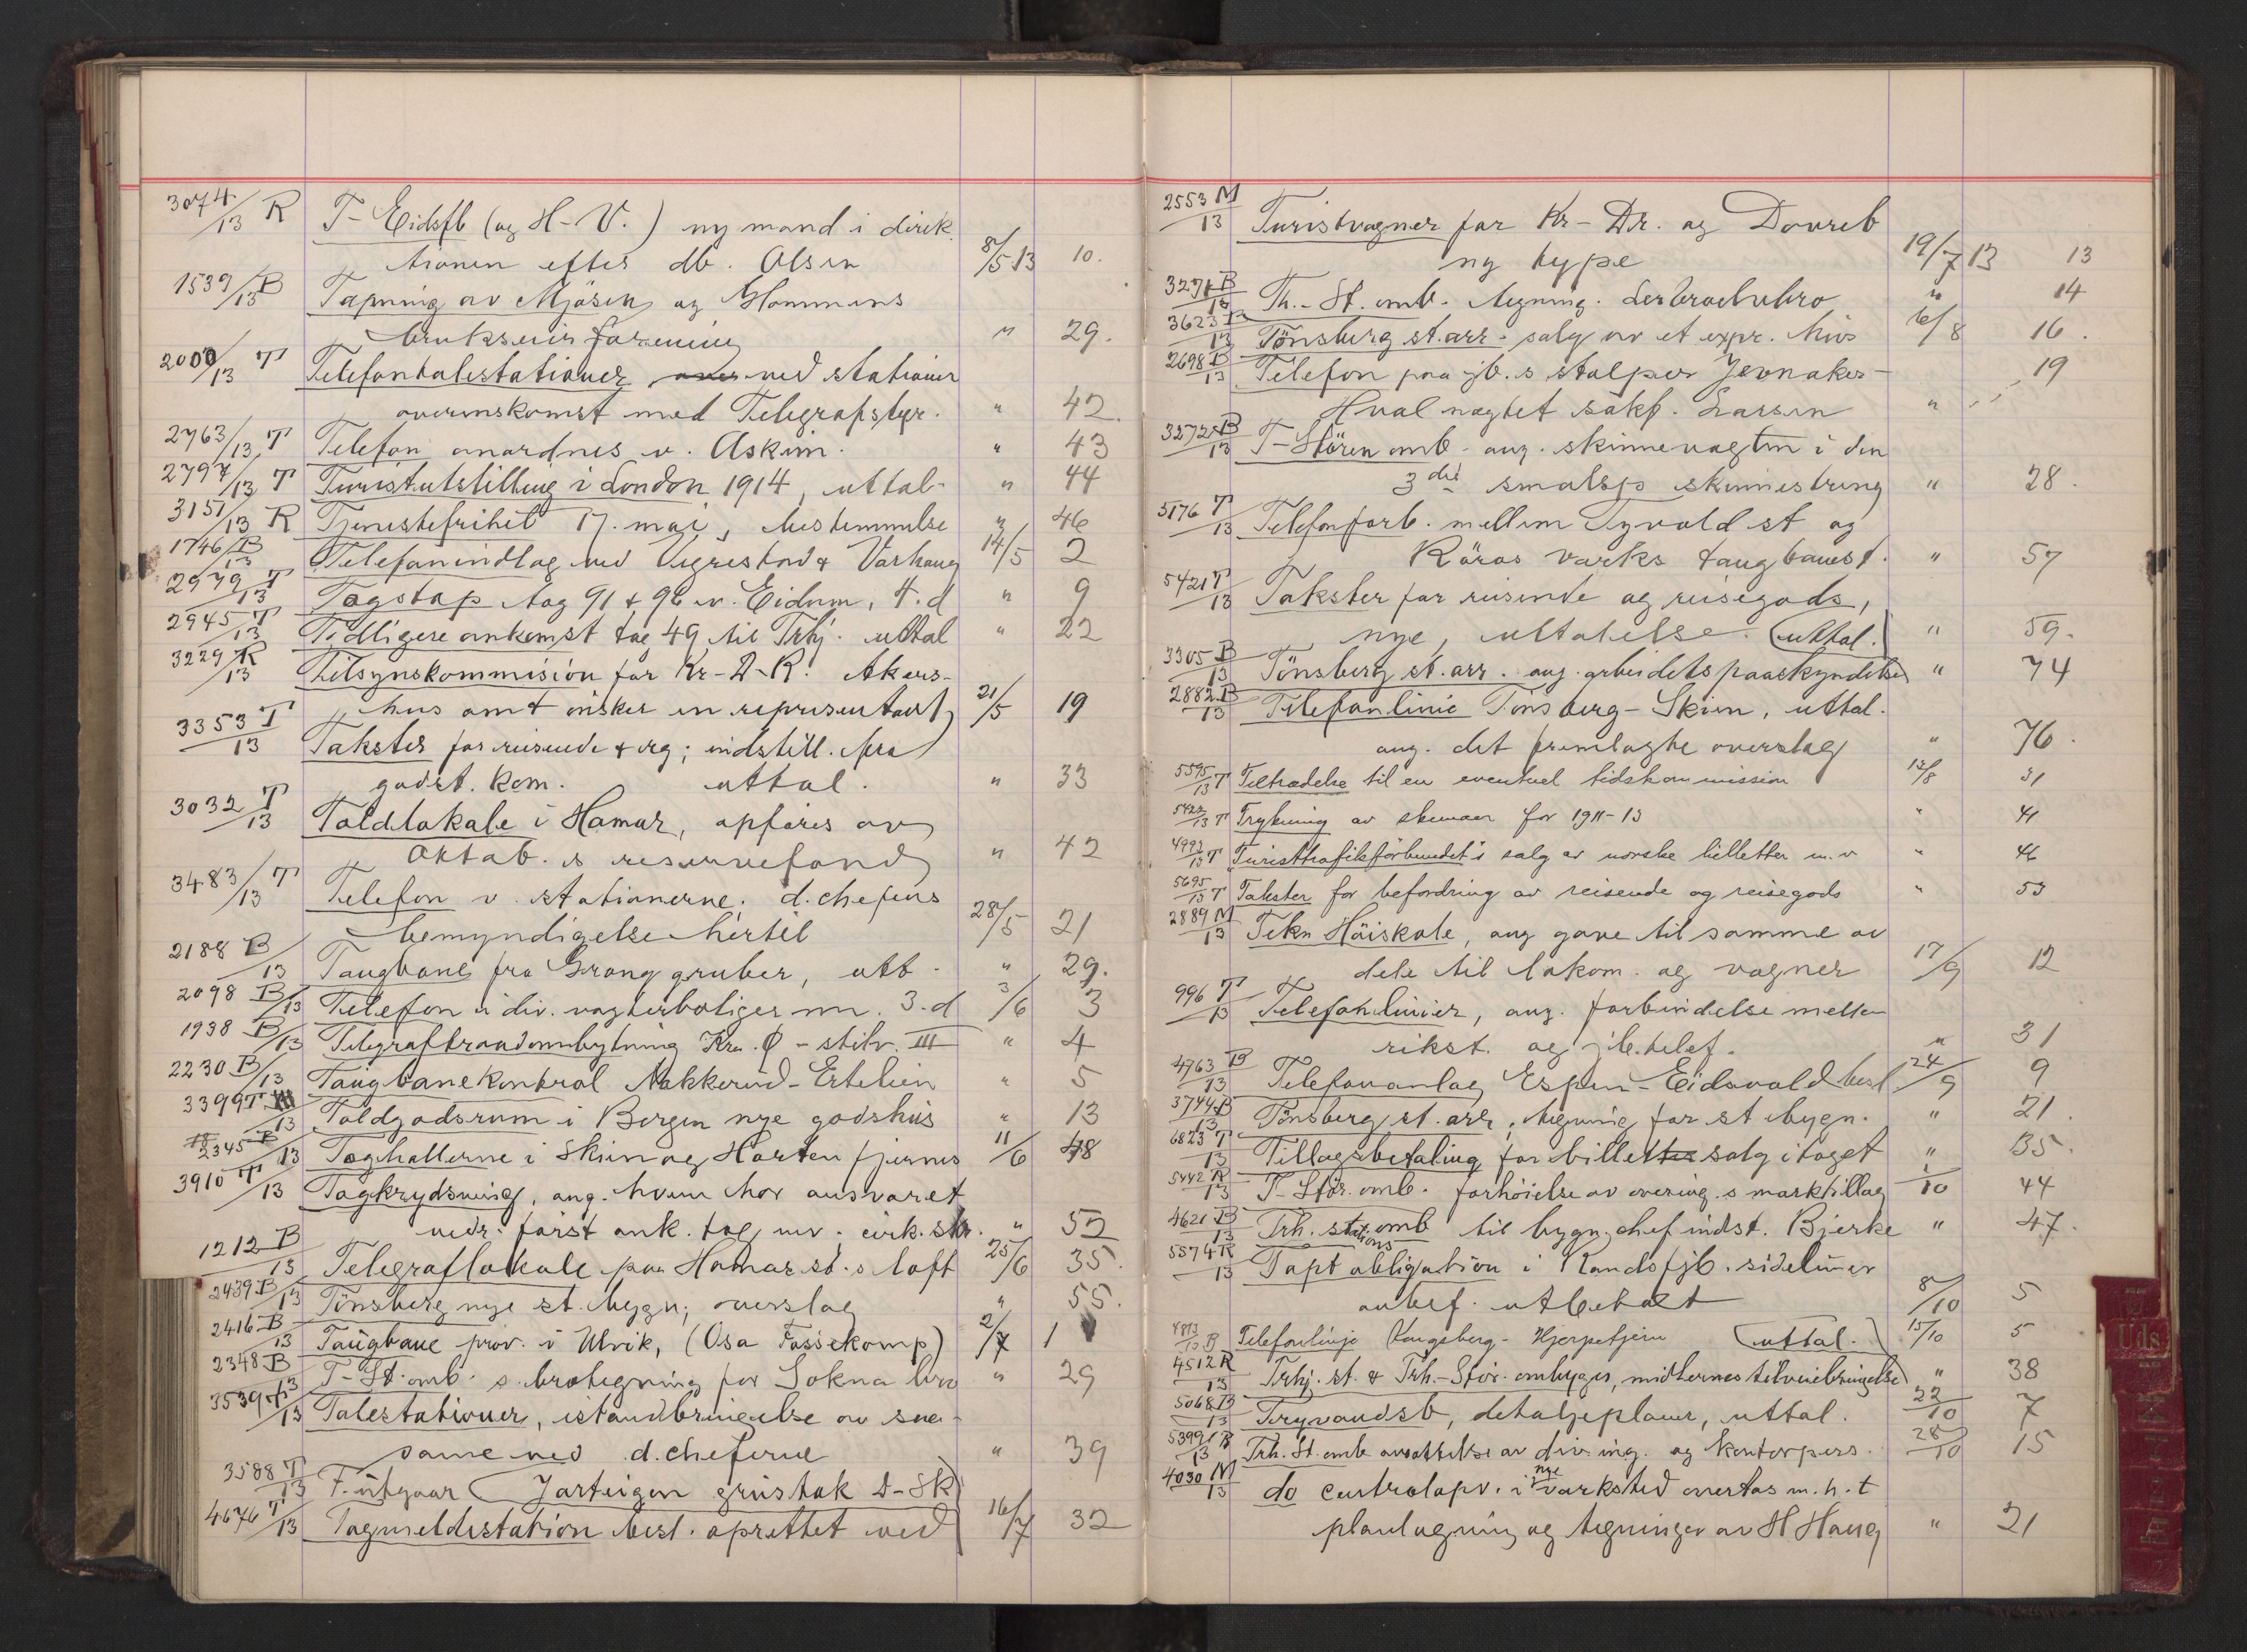 3074/13 R T- Eidsfb (og H-V.) ny mand i direk
tionen efter db. Olsen 8/5 13 10.
1539/13 B Tapning av Mjøsen og Glommens
brukseierforening " 29.
2000/13 T Telefontalestationer ved stationer
overenskomst med Telegrafstyr. " 42.
2763/13 T Telefon anordnes v. Askim. " 43
2797/13 T Turistutstilling i London 1914, uttal- " 44
3151/13 R Tjenestefrihet 17. mai, bestemmelse " 46
1746/13 B Telefonindlag ved Vigrestad & Varhaug 14/5 2
2979/13 T Togstop tog 91 & 96 v. Eidum, H.d " 9
2945/13 T Tidligere ankomst tog 49 til Trhj. uttal " 22
3229/13 R Tilsynskommision for Kr-D-R. Akers-
hus amt ønsker en representant 21/5 19
3353/13 T Takster for reisende & rg; indstill. fra
godst. kom. uttal. " 33
3032/13 T Toldlokale i Hamar, opføres av
Aktab.s reservefond " 42
3483/13 T Telefon v. stationerne, d.chefens
bemyndigelse hertil 28/5 21
2188 B/13 Taugbane fra Grong gruber, utt. " 29.
2098 B/13 Telefon i div. vogterboliger m. 3.d 3/6 3
1938 B/13 Telegraftraadombytning Kra. Ø - stilv. III " 4
2230 B/13 Taugbanekontrol Nakkerud-Ertelien " 5
3399 T/13 Toldgodsrum i Bergen nye godshus " 13
2345 B/13 Toghallerne i Skien og Horten fjernes 11/6 48
3910 T/13 Togkrydsning, ang. hvem har ansvaret
vedr. først ank. tog mv. cirk. skr. " 52
1212 B/13 Telegraflokale paa Hamar st.s loft 25/6 35.
2439 B/13 Tönsberg nye st. bygn; overslag " 55.
2416 B/13 Taugbane prov. i Ulvik, (Osa Fossekomp) 2/7 1
2348 B/13 T-St.omb. s. brotegning for Sokna bro " 29
3539 T/13 Talestationer, istandbringelse av saa-
same ved d.cheferne " 39
3588 T/13 F. utgaar (Jarteigen grustak D-SK)
4676 T/13 Togmeldestation best. oprettet ved 16/7 32
2553 M/13 Turistvogner for Kr-Dr. og Dovreb
ny type 19/7 13 13
3271 B/13 Th.-St. omb. tegning. Lerbroelvbro " 14
3623 B/13 Tönsberg st.arr. salg av et expr. hus 6/8 16.
2698 B/13 Telefon paa jb.s stolper Jevnaker- 19
Hval nægtet sakf. Larsen "
3272 B/13 T-Stören omb. ang. skinnevegten i den
3die smalsp skinnestreng " 28.
5176 T/13 Telefonforb. mellem Tyvold st og
Röros verks taugbanest. " 57
5421 T/13 Takster for reisende og reisegods,
nye, uttalelse. (uttal.) " 59.
3305 B/13 Tönsberg st. arr. ang. arbeidets paaskyndelse " 74
2882 B/13 Telefonlinie Tönsberg-Skien, uttal.
ang. det fremlagte overslag " 76.
5595/13 T Tiltrædelse til en eventuel tidskommission 13/8 31
5422/13 T Trykning av skemaer for 1911-13 " 41
4992/13 T Turisttrafikforbundet's salg av norske billetter m.v " 46
5695/13 T Takster for befordring av reisende og reisegods " 53
2889 M/13 Tekn Høiskole, ang gave til samme av
dele til lokom. og vogner 17/9 12
996 T/13 Telefonlinier, ang. forbindelse mellem
rikst. og jb.telef. " 31
4763 B/13 Telefonanlæg Espen-Eidsvold best. 24/9 9
3744 B/13 Tönsberg st. arr, tegning for st bygn. " 21.
6823 T/13 Tillægsbetaling for billetsalg i toget " 35.
5442 R/13 T-Stör. omb. forhöielse av overing.s marktillæg 1/10 44
4621 B/13 Trh. stations omb til bygn.chef indst. Bjerke " 47.
5574 R/13 Tapt obligation i Randsfjb. sidelinier
anbef. utbetalt 8/10 5
4813/10 B Telefonlinje Kongsberg-Hjerpetjern (uttal.) 15/10 5
4512 R/13 Trhj. st. & Trh.-Stör. ombygges, midlernes tilveiebringelse " 38
5068 B/13 Tryvandsb, detaljeplaner, uttal. 22/10 7
5399 B/13 Trh. St. omb ansættelse av div. ing. og kontorpers. 28/10 15
4030 M/13 do centralapv. i nye verksted overtas m.h.t
planlægning og tegninger av H Haug " 21
Uds